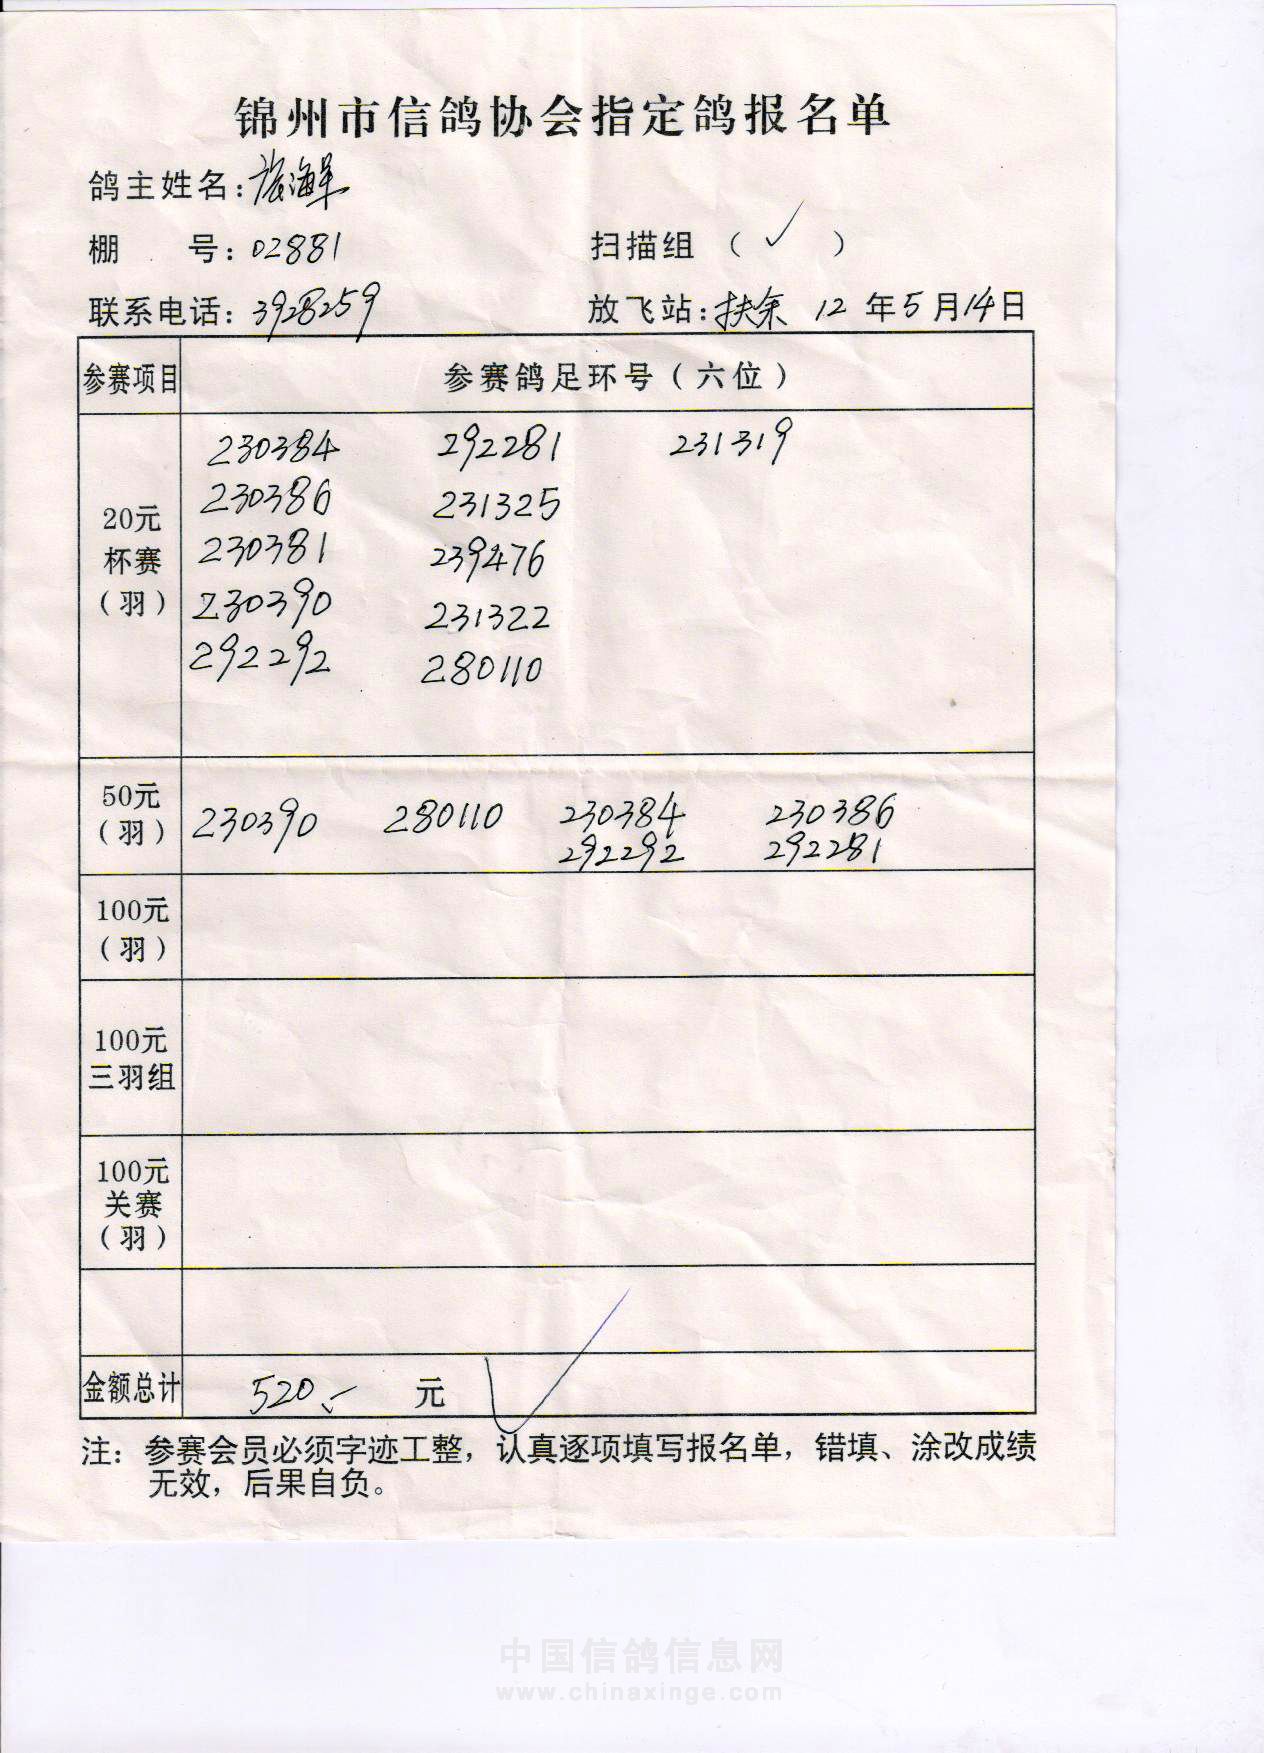 锦州市信鸽协会指定鸽报名单
鸽主姓名：海
棚 号：02881 扫描组（✓）
联系电话：3928259 放飞站：扶余 12年5月14日
参赛项目 参赛鸽足环号（六位）
20元
杯赛
（羽）
230384 292281 231319
230386 231325
230381 239476
230390 231322
292292 280110
50元
（羽）
230390 280110 230384 230386
292292 292281
100元
（羽）
100元
三羽组
100元
关赛
（羽）
金额总计 520 元
注：参赛会员必须字迹工整，认真逐项填写报名单，错填、涂改成绩
无效，后果自负。
中国信鸽信息网
www.chinaxinge.com